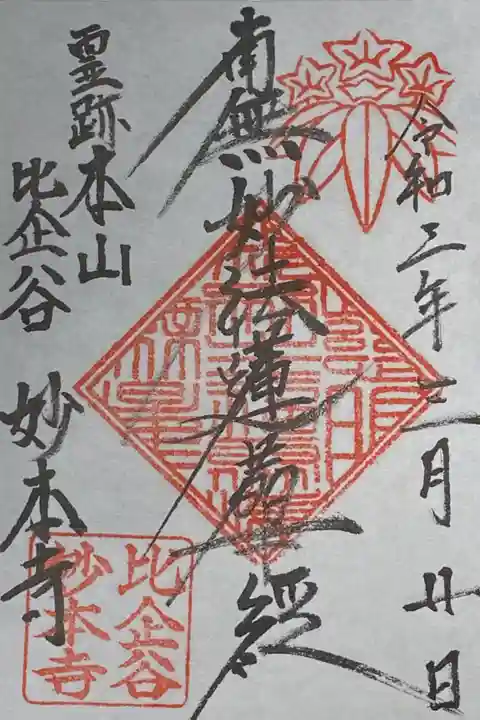 令和三年
月廿日
南無妙法蓮華経
霊跡本山
比企谷
妙本寺
比企谷
妙本寺